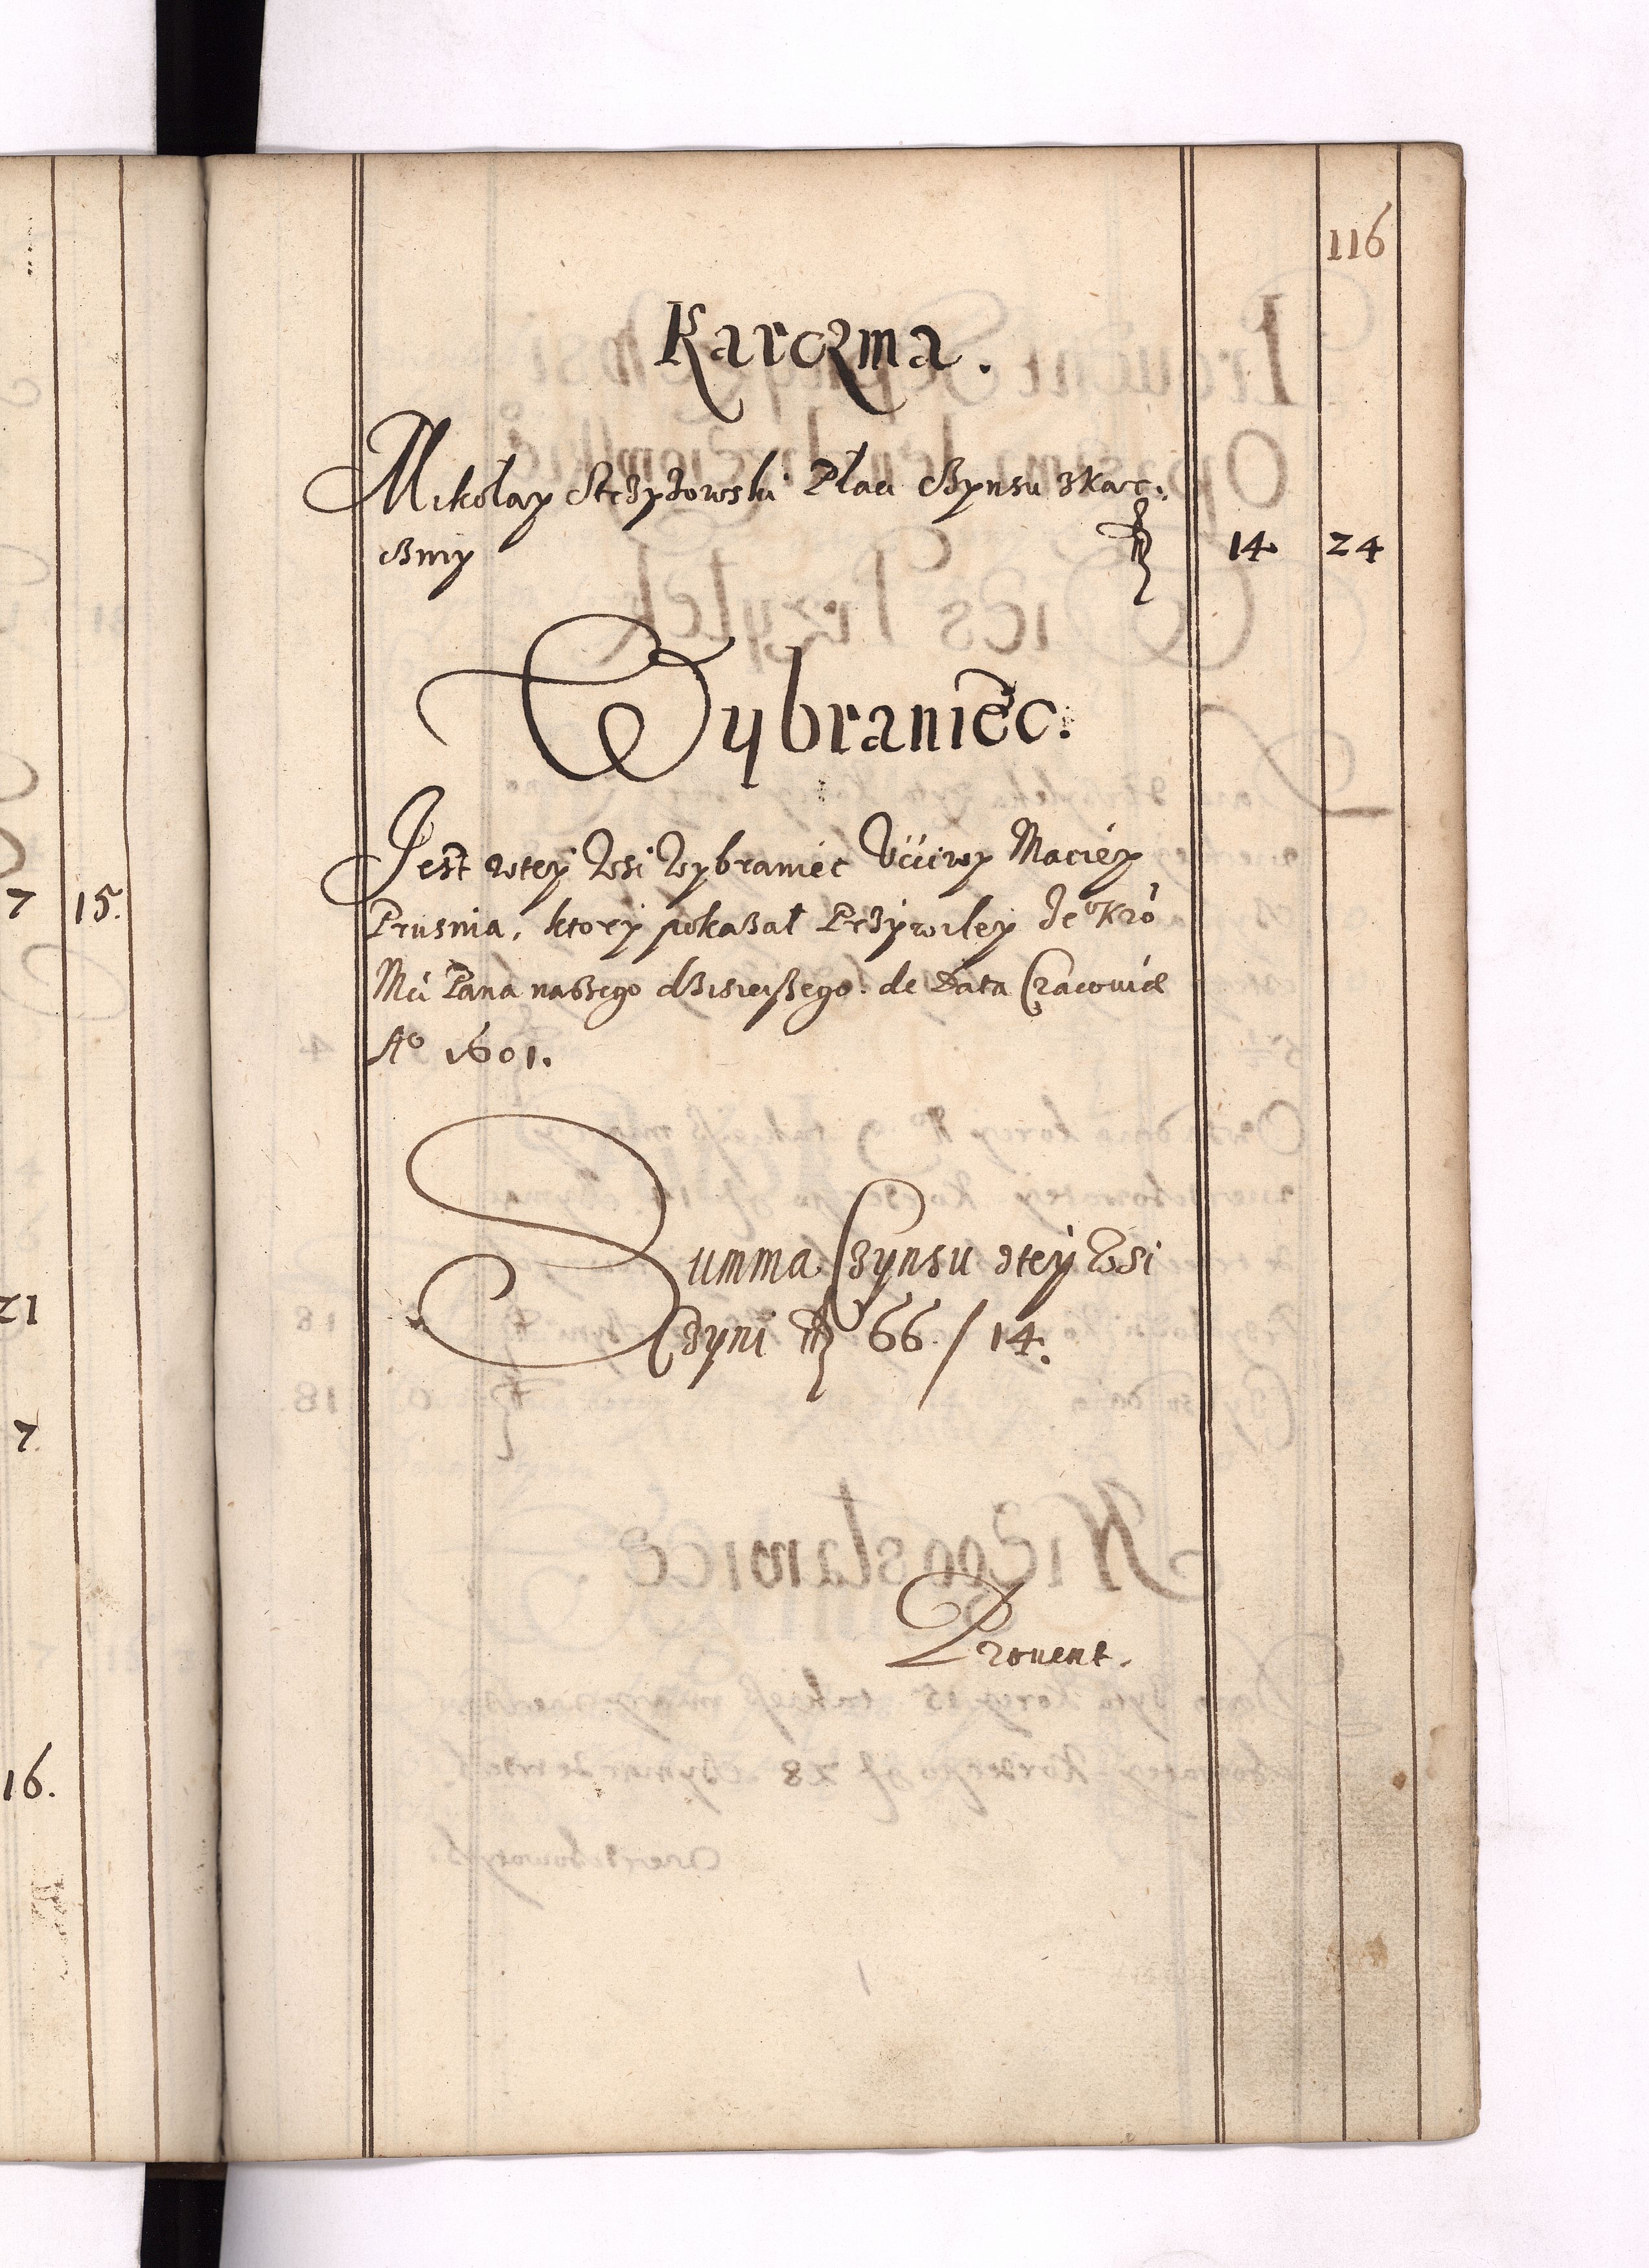 116
Karczma.
Mikołay Strzyżowski Płaci Czynsu zkar:
czmy fl 14 24
Wybraniec.
Jest wtey Wsi Wybraniec Uczciwy Maciey
Prusnia, ktory pokazał Przywiley Je° Kró
Mci Pana naszego dzisieyszego. de Data Cracoviæ
A° 1601.
Summa Czynsu ztey Wsi
Czyni fl 66 / 14.
Prouent.
7 15.
21
7
16.